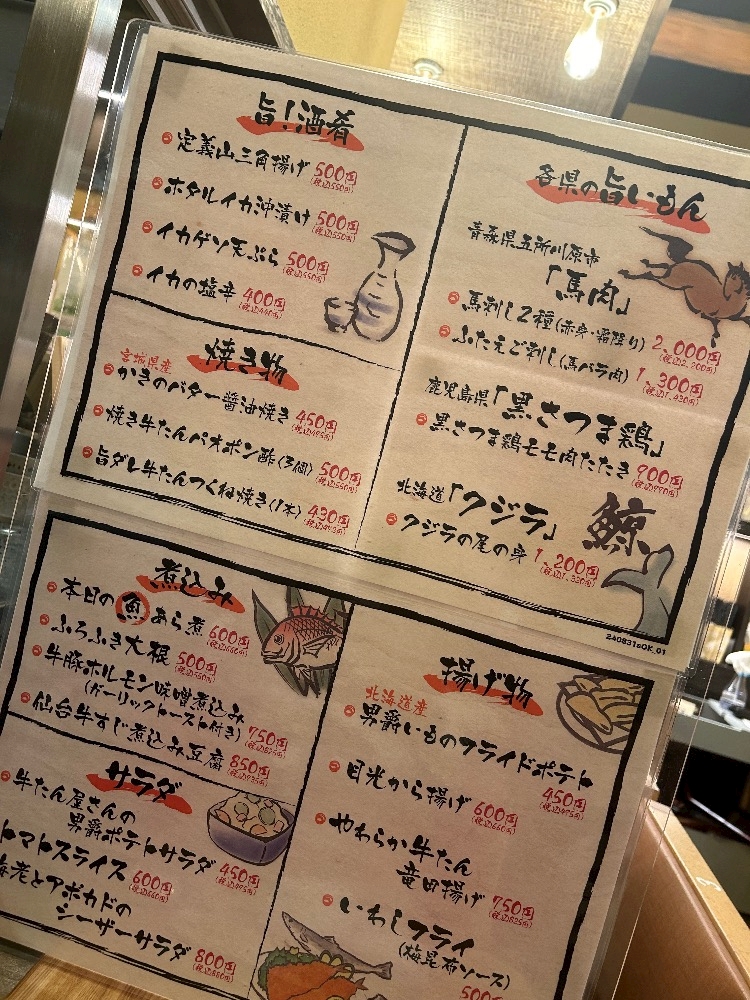 旨!酒肴
定義山三角揚げ 500円
(税込550円)
ホタルイカ沖漬け 500円
(税込550円)
イカゲソ天ぷら 500円
(税込550円)
イカの塩辛 400円
(税込440円)
焼き物
宮城県産
かきのバター醤油焼き 450円
(税込495円)
焼き牛たんバオポン酢(3個) 500円
(税込550円)
旨ダレ牛たんつくね焼き(1本) 430円
(税込473円)
各県の旨いもん
青森県五所川原市
「馬肉」
馬刺し2種(赤身・霜降り) 2,000円
(税込2,200円)
ふたえご刺し(馬バラ肉) 1,300円
(税込1,430円)
鹿児島県「黒さつま鶏」
黒さつま鶏モモ肉たたき 900円
(税込990円)
北海道「クジラ」
クジラの尾の身 1,200円
(税込1,320円)
鯨
240831sOK_01
煮込み
本日の魚あら煮 600円
(税込660円)
ふろふき大根 500円
(税込550円)
牛豚ホルモン味噌煮込み
(ガーリックトースト付き) 750円
(税込825円)
仙台牛すじ煮込み豆腐 850円
(税込935円)
サラダ
牛たん屋さんの
男爵ポテトサラダ 450円
(税込495円)
トマトスライス 600円
(税込660円)
老とアボカドの
シーザーサラダ 800円
(税込880円)
揚げ物
北海道産
男爵いものフライドポテト
450円
(税込495円)
目光から揚げ 600円
(税込660円)
やわらか牛たん
竜田揚げ 750円
(税込825円)
いわしフライ
(梅昆布ソース)
500円